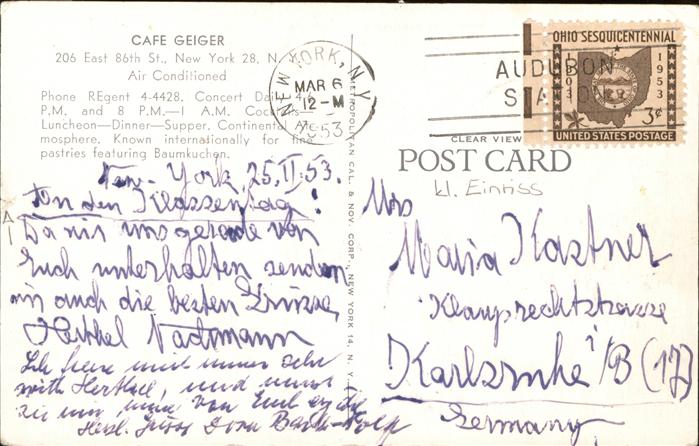 CAFE GEIGER
206 East 86th St., New York 28, N.
Air Conditioned
Phone REgent 4-4428. Concert Daily 4
P.M. and 8 P.M.—1 A.M. Cocktails—
Luncheon—Dinner—Supper. Continental At-
mosphere. Known internationally for fine
pastries featuring Baumkuchen.
New-York, 25.II.53.
An den Klassentag!
Da wir uns gerade von
Euch unterhalten senden
wir auch die besten Grüsse,
Herthel
Ich freue mich immer sehr
with Herthel, und
von Euch
Herzl. Dora
METROPOLITAN CAL. & NOV. CORP., NEW YORK 14, N. Y.
NEW YORK, N.Y.
MAR 6
12-M
1953
AUDUBON
STATION
OHIO SESQUICENTENNIAL
1803
1953
3¢
UNITED STATES POSTAGE
CLEAR VIEW
POST CARD
kl. Einriss
Mrs
Maria Kastner
Klauprechtstrasse
Karlsruhe /B (17)
Germany